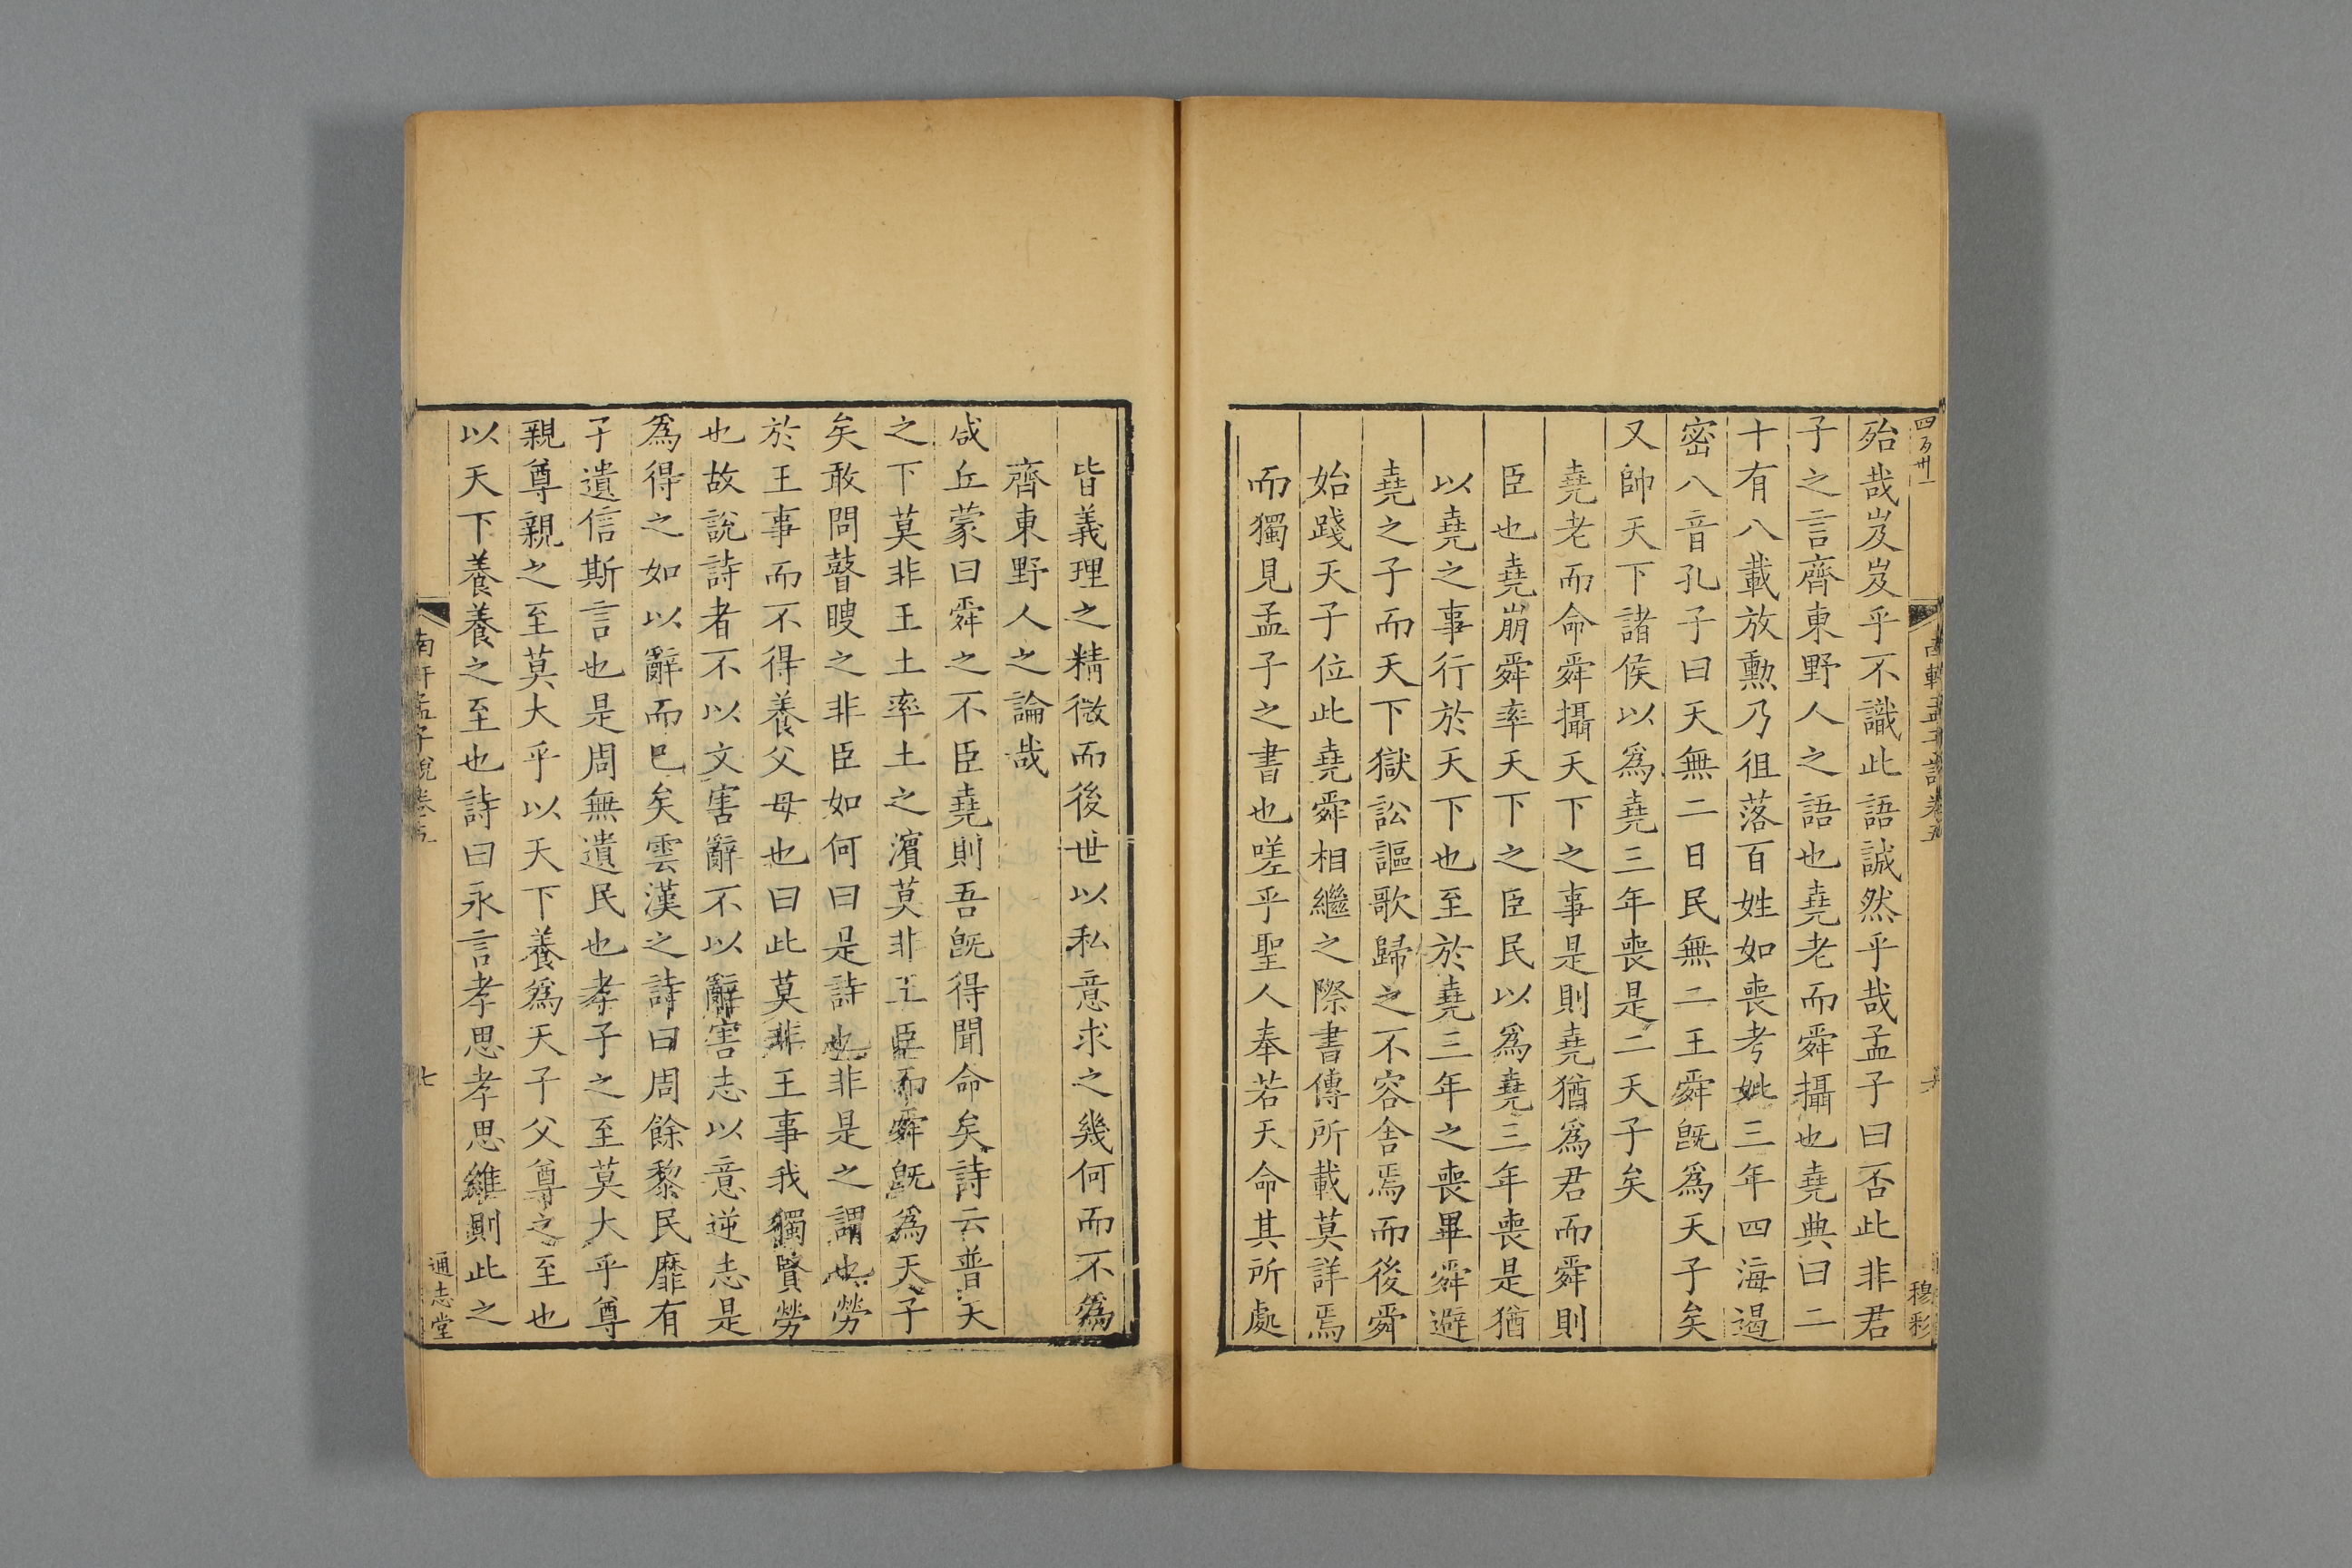 四百卅一
南軒孟子説卷五
穆彩
殆哉岌岌乎不識此語誠然乎哉孟子曰否此非君
子之言齊東野人之語也堯老而舜攝也堯典曰二
十有八載放勲乃徂落百姓如喪考妣三年四海遏
密八音孔子曰天無二日民無二王舜旣爲天子矣
又帥天下諸侯以爲堯三年喪是二天子矣
堯老而命舜攝天下之事是則堯猶爲君而舜則
臣也堯崩舜率天下之臣民以爲堯三年喪是猶
以堯之事行於天下也至於堯三年之喪畢舜避
堯之子而天下獄訟謳歌歸之不容舍焉而後舜
始踐天子位此堯舜相繼之際書傳所載莫詳焉
而獨見孟子之書也嗟乎聖人奉若天命其所處
皆義理之精微而後世以私意求之幾何而不爲
齊東野人之論哉
咸丘蒙曰舜之不臣堯則吾旣得聞命矣詩云普天
之下莫非王土率土之濱莫非王臣而舜旣爲天子
矣敢問瞽瞍之非臣如何曰是詩也非是之謂也勞
於王事而不得養父母也曰此莫非王事我獨賢勞
也故說詩者不以文害辭不以辭害志以意逆志是
爲得之如以辭而已矣雲漢之詩曰周餘黎民靡有
孑遺信斯言也是周無遺民也孝子之至莫大乎尊
親尊親之至莫大乎以天下養爲天子父尊之至也
以天下養養之至也詩曰永言孝思孝思維則此之
南軒孟子說卷五
七
通志堂